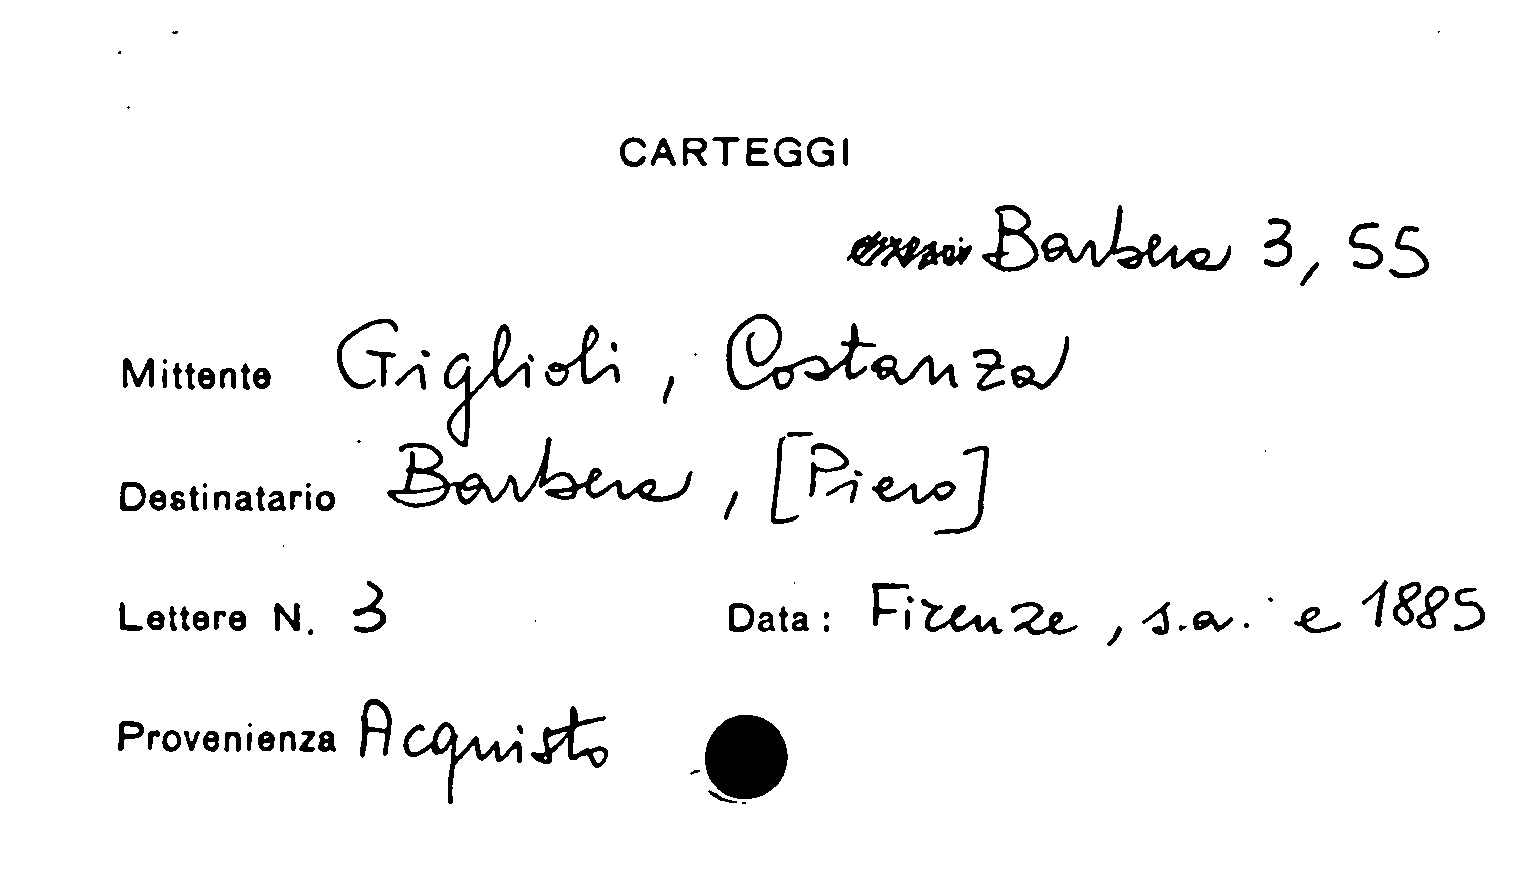 CARTEGGI
Barbera 3, 55
Mittente Giglioli, Costanza
Destinatario Barbera, [Piero]
Lettere N. 3 Data: Firenze, s.a. e 1885
Provenienza Acquisto